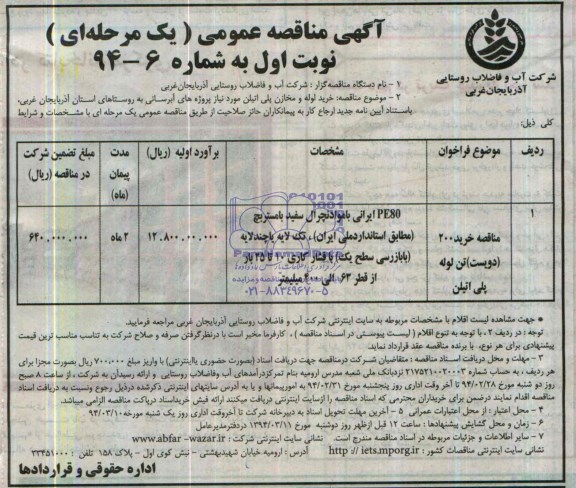 آگهی مناقصه عمومی ( یک مرحله‌ای )
نوبت اول به شماره ۶-۹۴
شرکت آب و فاضلاب روستایی
آذربایجان‌غربی
۱ - نام دستگاه مناقصه‌گزار : شرکت آب و فاضلاب روستایی آذربایجان‌غربی
۲ - موضوع مناقصه: خرید لوله و مخازن پلی اتیلن مورد نیاز پروژه های آبرسانی به روستاهای استان آذربایجان غربی،
باستناد آیین نامه جدید ارجاع کار به پیمانکاران حائز صلاحیت از طریق مناقصه عمومی یک مرحله ای با مشخصات و شرایط
کلی ذیل:
ردیف
موضوع فراخوان
مشخصات
برآورد اولیه (ریال)
مدت پیمان (ماه)
مبلغ تضمین شرکت در مناقصه (ریال)
۱
مناقصه خرید۲۰۰ (دویست)تن لوله پلی اتیلن
PE80 ایرانی بامواد نچرال سفید بامستربچ
(مطابق استانداردملی ایران)، تک لایه یاچندلایه
(بابازرسی سطح یک) بافشار کاری ۱۰ تا ۲۵ بار
از قطر ۶۳ الی ۴۰۰ میلیمتر
۱۲.۸۰۰.۰۰۰.۰۰۰
۲ ماه
۶۴۰.۰۰۰.۰۰۰
۰۲۱-۸۸۳۴۹۶۷۰-۵
● جهت مشاهده لیست اقلام با مشخصات مربوطه به سایت اینترنتی شرکت آب و فاضلاب روستایی آذربایجان غربی مراجعه فرمایید.
توجه : در ردیف ۲، با توجه به تنوع اقلام ( لیست پیوستی در اسناد مناقصه )، کارفرما مخیر است با درنظرگرفتن صرفه و صلاح شرکت به تناسب مناسب ترین قیمت
پیشنهادی برای هر نوع، با برنده مناقصه عقد قرارداد نماید.
۳ - مهلت و محل دریافت اسناد مناقصه : متقاضیان شرکت درمناقصه جهت دریافت اسناد (بصورت حضوری یااینترنتی) با واریز مبلغ ۷۰۰،۰۰۰ ریال بصورت مجزا برای
هر ردیف، به حساب شماره ۲۱۷۵۲۱۰۰۲۰۰۳ نزدبانک ملی شعبه مدرس ارومیه بنام تمرکزدرآمدهای آب وفاضلاب روستایی و ارائه رسیدآن به شرکت، از ساعت ۸ صبح
روز دو شنبه مورخ ۹۴/۰۲/۲۸ تا آخر وقت اداری روز پنجشنبه مورخ ۹۴/۰۲/۳۱ به امورپیمانها و یا به آدرس سایتهای اینترنتی ذکرشده درذیل رجوع ونسبت به دریافت اسناد
مناقصه اقدام نمایند درضمن برای خریداران محترمی که اسناد مناقصه را ازسایت اینترنتی دریافت میکنند ارائه فیش خریداسناد درپاکت مناقصه الزامی میباشد.
۴ - محل اعتبار : از محل اعتبارات عمرانی ۵ - آخرین مهلت تحویل اسناد به دبیرخانه شرکت تا آخروقت اداری روز یک شنبه مورخه ۹۴/۰۳/۱۰
۶ - زمان و محل گشایش پیشنهادها : ساعت ۱۲ قبل ازظهر روز دوشنبه مورخ ۱۳۹۴/۰۳/۱۱ دردفترمدیرعامل
۷ - سایر اطلاعات و جزئیات مربوطه در اسناد مناقصه مندرج است. نشانی سایت اینترنتی شرکت : www.abfar-wazar.ir
نشانی سایت مناقصات کشور : http://iets.mporg.ir آدرس : ارومیه خیابان شهیدبهشتی - نبش کوی اول - پلاک ۱۵۸ تلفن : ۳۳۴۵۱۰۰۰
اداره حقوقی و قراردادها